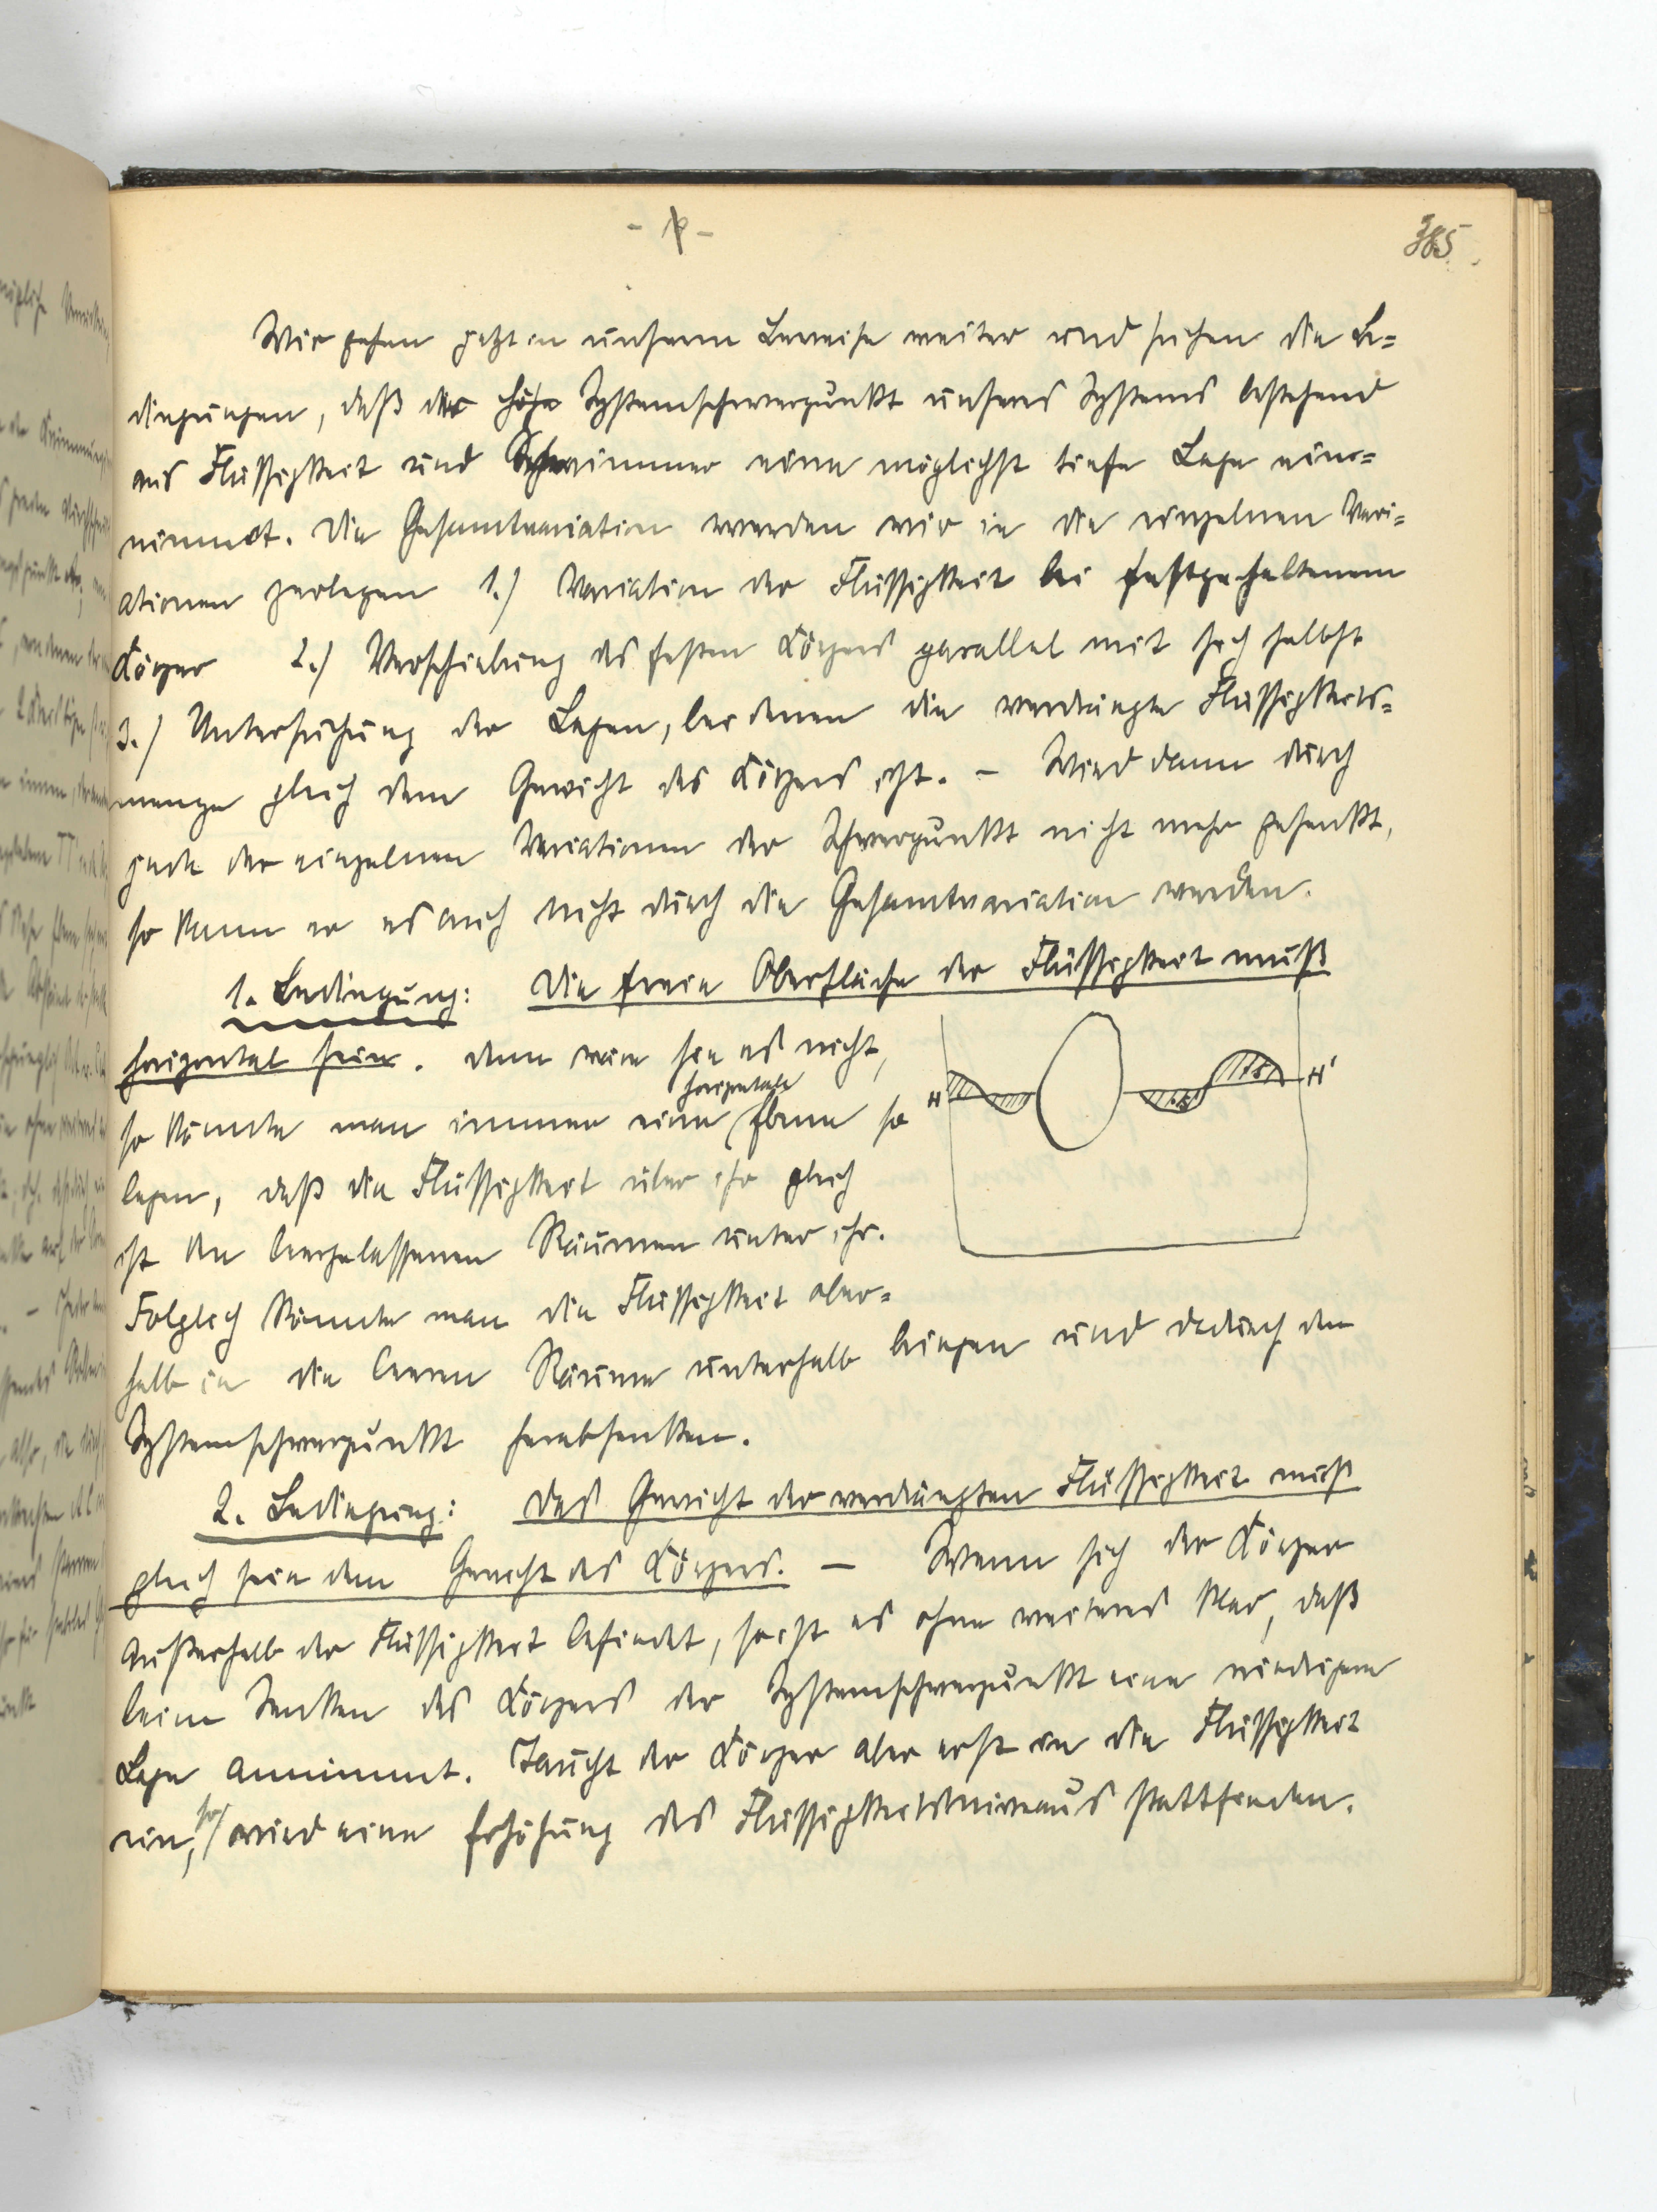 385
Wir gehen jetzt in unserm Beweise weiter und suchen die Be=
dingungen, daß der Systemschwerpunkt unseres Systems bestehend
aus Flüssigkeit und Schwimmer eine möglichst tiefe Lage ein=
nimmt. Die Gesamtvariation werden wir in die einzelnen Vari=
ationen zerlegen 1.) Variation der Flüssigkeit bei festgehaltenem
Körper 2.) Verschiebung des festen Körpers parallel mit sich selbst
3.) Untersuchung der Lagen, bei denen die verdrängte Flüssigkeits=
menge gleich dem Gewicht des Körpers ist. – Wird dann durch
jede der einzelnen Variationen der Schwerpunkt nicht mehr gesenkt,
so kann er es auch nicht durch die Gesamtvariation werden.
1. Bedingung: Die freie Oberfläche der Flüssigkeit muß
horizontal sein. denn wäre sie es nicht,
so könnte man immer eine horizontale Ebene so
legen, daß die Flüssigkeit über ihr gleich
ist den leergelassenen Räumen unter ihr.
Folglich könnte man die Flüssigkeit ober=
halb in die leeren Räume unterhalb bringen und dadurch den
Systemschwerpunkt herabsenken.
H H'
2. Bedingung: Das Gewicht der verdrängten Flüssigkeit muß
gleich sein dem Gewicht des Körpers. – Wenn sich der Körper
außerhalb der Flüssigkeit befindet, so ist es ohne weiteres klar, daß
beim Senken des Körpers der Systemschwerpunkt eine niedrigere
Lage annimmt. Taucht der Körper aber erst in die Flüssigkeit
ein, so wird eine Erhöhung des Flüssigkeitsniveaus stattfinden.